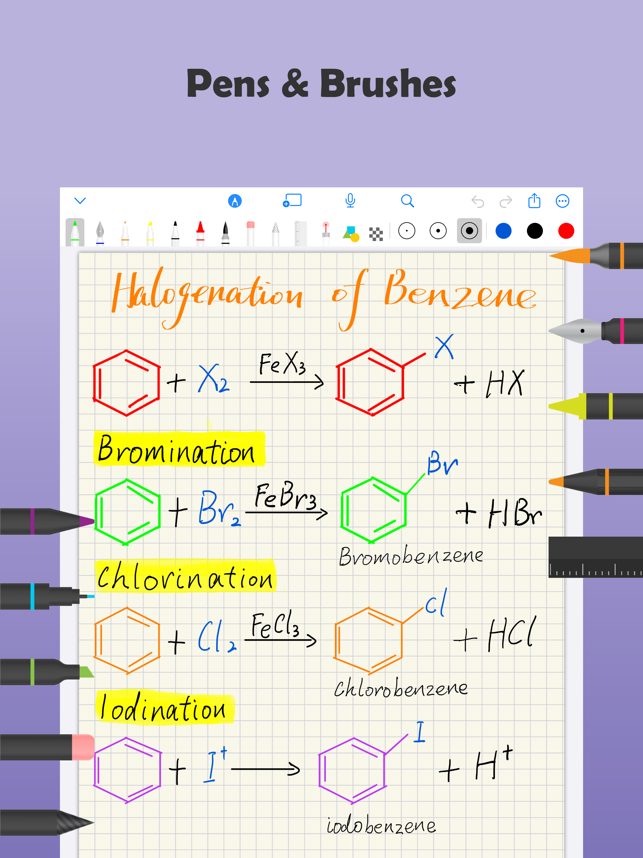 Pens & Brushes
Halogenation of Benzene
+ X₂ FeX₃ X + HX
Bromination
+ Br₂ FeBr₃ Br + HBr
Bromobenzene
Chlorination
+ Cl₂ FeCl₃ Cl + HCl
Chlorobenzene
Iodination
+ I⁺ I + H⁺
iodobenzene